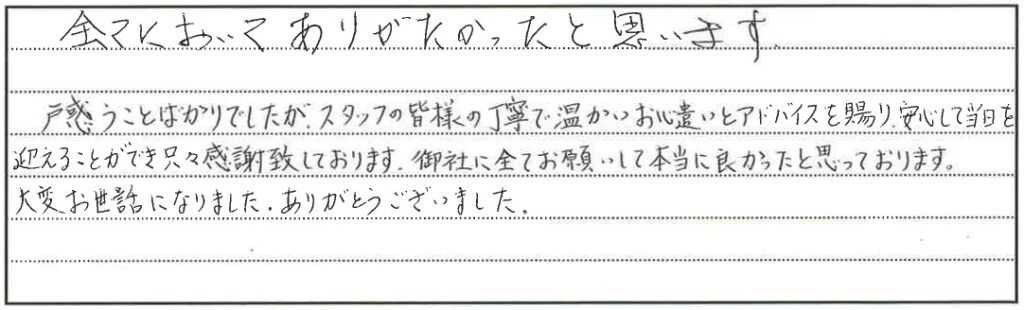 全てにおいてありがたかったと思います.
戸惑うことばかりでしたが、スタッフの皆様の丁寧で温かいお心遣いとアドバイスを賜り、安心して当日を
迎えることができ只々感謝致しております。御社に全てお願いして本当に良かったと思っております。
大変お世話になりました。ありがとうございました。